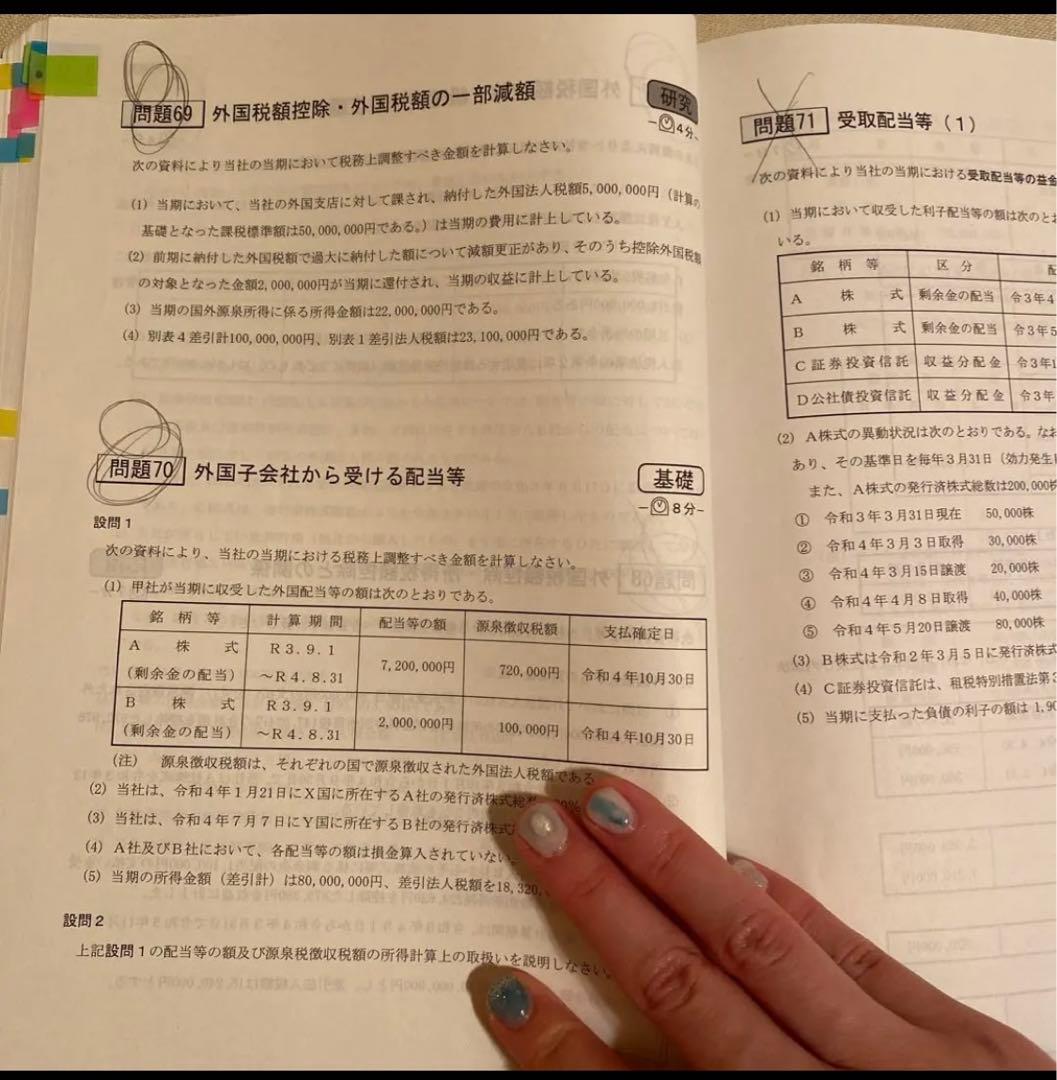 問題69 外国税額控除・外国税額の一部減額
研究
4分
次の資料により当社の当期において税務上調整すべき金額を計算しなさい。
(1) 当期において、当社の外国支店に対して課され、納付した外国法人税額5,000,000円(計算の
基礎となった課税標準額は50,000,000円である。)は当期の費用に計上している。
(2) 前期に納付した外国税額で過大に納付した額について減額更正があり、そのうち控除外国税額
の対象となった金額2,000,000円が当期に還付され、当期の収益に計上している。
(3) 当期の国外源泉所得に係る所得金額は22,000,000円である。
(4) 別表4差引計100,000,000円、別表1差引法人税額は23,100,000円である。
問題70 外国子会社から受ける配当等
基礎
8分
設問1
次の資料により、当社の当期における税務上調整すべき金額を計算しなさい。
(1) 甲社が当期に収受した外国配当等の額は次のとおりである。
銘柄等 計算期間 配当等の額 源泉徴収税額 支払確定日
A株式 R3.9.1
(剰余金の配当) ~R4.8.31 7,200,000円 720,000円 令和4年10月30日
B株式 R3.9.1
(剰余金の配当) ~R4.8.31 2,000,000円 100,000円 令和4年10月30日
(注) 源泉徴収税額は、それぞれの国で源泉徴収された外国法人税額である
(2) 当社は、令和4年1月21日にX国に所在するA社の発行済株式総数
(3) 当社は、令和4年7月7日にY国に所在するB社の発行済株式
(4) A社及びB社において、各配当等の額は損金算入されていない。
(5) 当期の所得金額(差引計)は80,000,000円、差引法人税額を18,320,
設問2
上記設問1の配当等の額及び源泉税徴収税額の所得計算上の取扱いを説明しなさい。
問題71 受取配当等(1)
次の資料により当社の当期における受取配当等の益金
(1) 当期において収受した利子配当等の額は次のとお
いる。
銘柄等 区分 配
A株式 剰余金の配当 令3年4
B株式 剰余金の配当 令3年5
C証券投資信託 収益分配金 令3年1
D公社債投資信託 収益分配金 令3年
(2) A株式の異動状況は次のとおりである。なお
あり、その基準日を毎年3月31日(効力発生
また、A株式の発行済株式総数は200,000株
① 令和3年3月31日現在 50,000株
② 令和4年3月3日取得 30,000株
③ 令和4年3月15日譲渡 20,000株
④ 令和4年4月8日取得 40,000株
⑤ 令和4年5月20日譲渡 80,000株
(3) B株式は令和2年3月5日に発行済株式
(4) C証券投資信託は、租税特別措置法第3
(5) 当期に支払った負債の利子の額は1,90